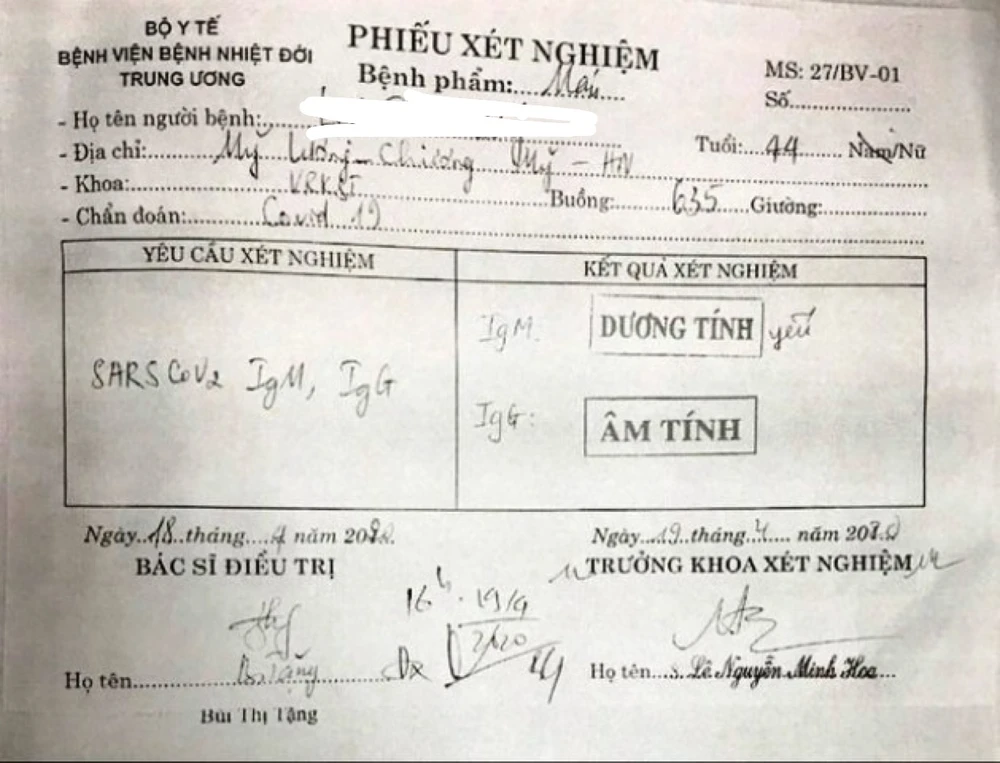 BỘ Y TẾ
BỆNH VIỆN BỆNH NHIỆT ĐỚI
TRUNG ƯƠNG
PHIẾU XÉT NGHIỆM
Bệnh phẩm:....Máu......
MS: 27/BV-01
Số......................
- Họ tên người bệnh:
- Địa chỉ:........Mỹ Lương - Chương Mỹ - HN
Tuổi:...44........ Nam/Nữ
- Khoa:
Buồng:........635......Giường:...............
- Chẩn đoán:..........Covid 19
YÊU CẦU XÉT NGHIỆM
KẾT QUẢ XÉT NGHIỆM
SARS CoV2 IgM, IgG
IgM. DƯƠNG TÍNH yếu
IgG: ÂM TÍNH
Ngày..18..tháng....4 năm 2020
BÁC SĨ ĐIỀU TRỊ
Ngày...19..tháng..4..... năm 2020
TRƯỞNG KHOA XÉT NGHIỆM
16h 19/4
2020
Họ tên............
Họ tên....S. Lê Nguyễn Minh Hoa....
Bùi Thị Tặng